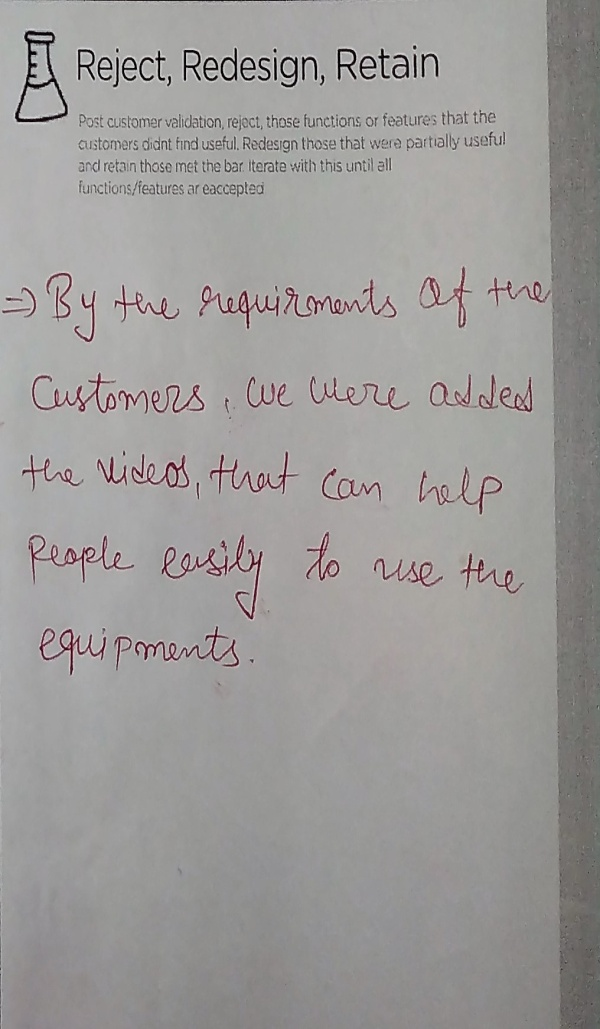 Reject, Redesign, Retain
Post customer validation, reject, those functions or features that the
customers didnt find useful. Redesign those that were partially useful
and retain those met the bar. Iterate with this until all
functions/features ar eaccepted
⇒ By the requirments Of the
Customers, we were added
the videos, that can help
People easily to use the
equipments.